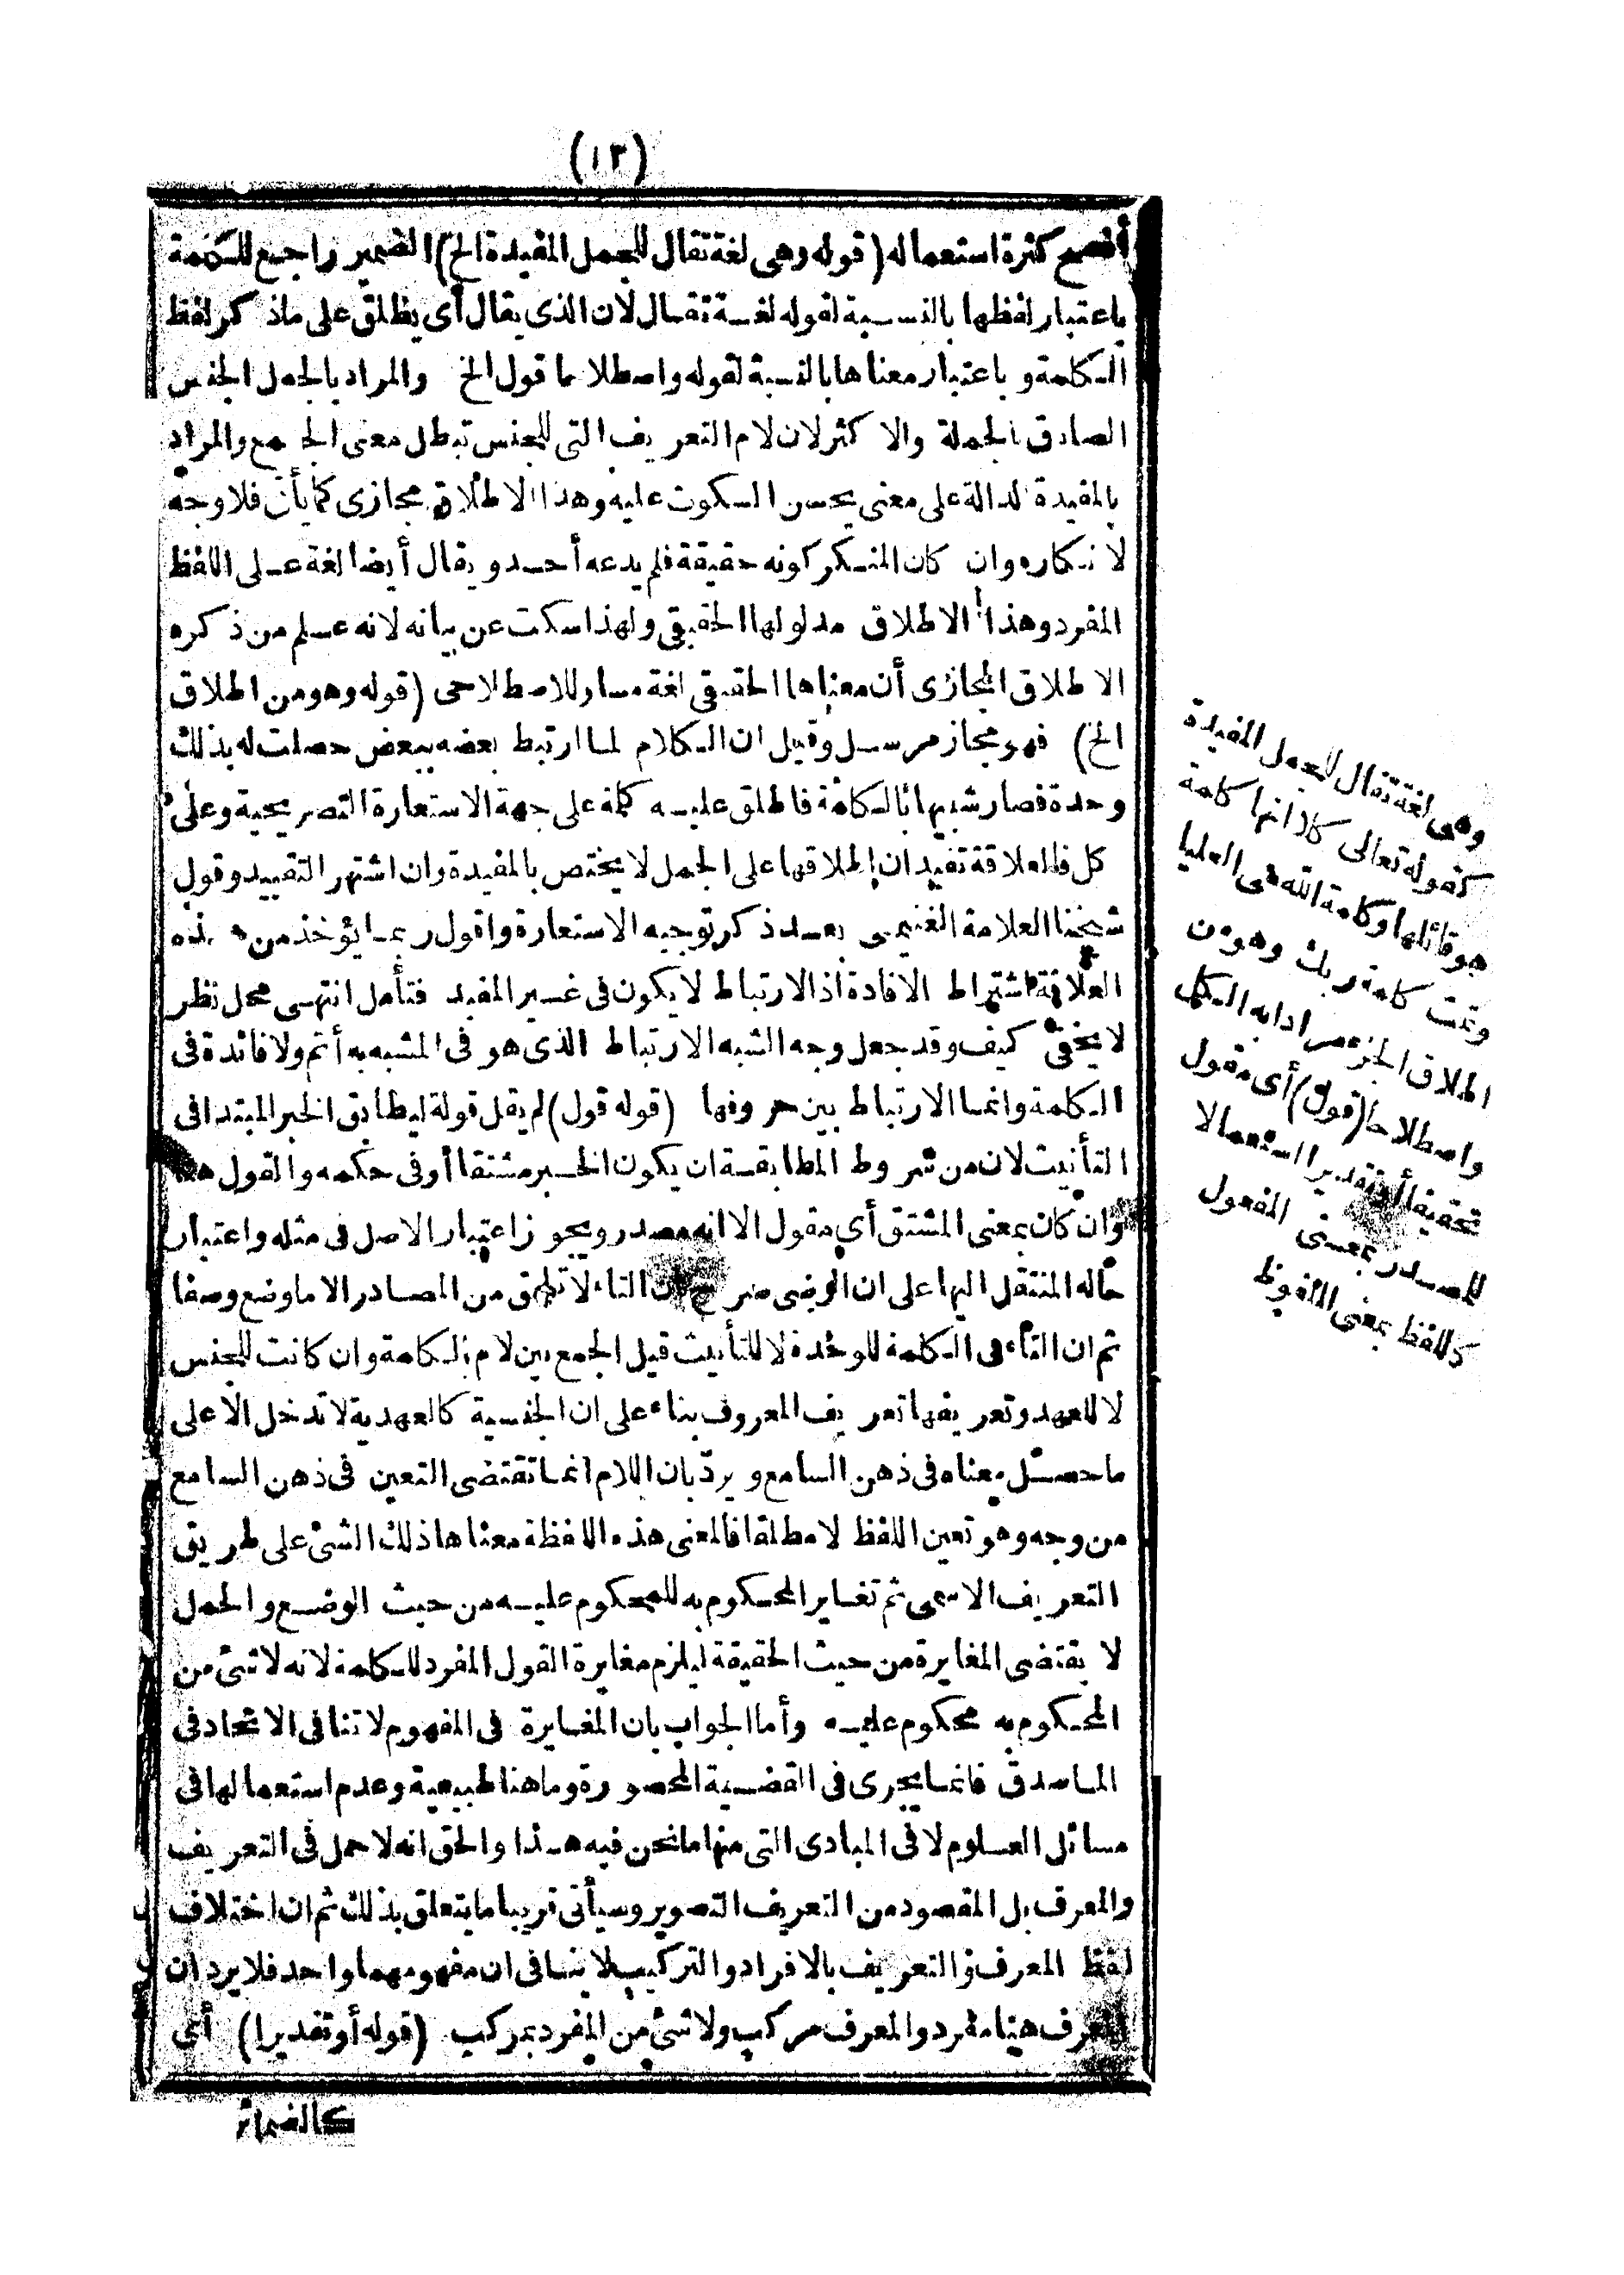 (١٣)
أفصح كثرة استعماله (قوله وهى لغة تقال للجمل المفيدة الخ) الضمير راجع للكلمة
باعتبار لفظها بالنسبة لقوله لغة تقال لأن الذى يقال أى يطلق على ماذكر لفظ
الكلمة وباعتبار معناها بالنسبة لقوله واصطلاحا قول الخ والمراد بالجمل الجنس
الصادق بالجملة والاكثر لان لام التعريف التى للجنس تبطل معنى الجمع والمراد
بالمفيدة الدالة على معنى يحسن السكوت عليه وهذا الاطلاق مجازى كما يأتى فلا وجه
لانكاره وان كان المنكر كونه حقيقة فلم يدعه أحد ويقال أيضا لغة على اللفظ
المفرد وهذا الاطلاق مدلولها الحقيقى ولهذا سكت عن بيانه لانه علم من ذكره
الاطلاق المجازى أن معناها الحقيقى لغة مساو للاصطلاحى (قوله وهو من اطلاق
الخ) فهو مجاز مرسل وقيل ان الكلام لما ارتبط بعضه ببعض حصلت له بذلك
وحدة فصار شبيها بالكلمة فاطلق عليه كلمة على جهة الاستعارة التصريحية وعلى
كل فالعلاقة تفيد ان اطلاقها على الجمل لا يختص بالمفيدة وان اشتهر التقييد وقول
شيخنا العلامة الغنيمى بعد ذكر توجيه الاستعارة واقول ربما يؤخذ من هذه
العلاقة اشتراط الافادة اذ الارتباط لا يكون فى غير المفيد فتأمل انتهى محل نظر
لا يخفى كيف وقد جعل وجه الشبه الارتباط الذى هو فى المشبه به أتم ولا فائدة فى
الكلمة وانما الارتباط بين حروفها (قوله قول) لم يقل قولة ليطابق الخبر المبتدا فى
التأنيث لان من شروط المطابقة ان يكون الخبر مشتقا أو فى حكمه والقول هنا
وان كان بمعنى المشتق أى مقول الا انه مصدر ويجوز اعتبار الاصل فى مثله واعتبار
حاله المنتقل اليها على ان الرضى صرح بأن التاء لا تلحق من المصادر الا ما وضع وصفا
ثم ان التاء فى الكلمة للوحدة لا للتأنيث قيل الجمع بين لام الكلمة وان كانت للجنس
لا للعهد وتعريفها تعريف المعروف بناء على ان الجنسية كالعهدية لا تدخل الا على
ما حصل معناه فى ذهن السامع ويردّ بان اللام انما تقتضى التعين فى ذهن السامع
من وجه وهو تعين اللفظ لا مطلقا فالمعنى هذه اللفظة معناها ذلك الشئ على طريق
التعريف الاسمى ثم تغاير المحكوم به للمحكوم عليه من حيث الوضع والحمل
لا يقتضى المغايرة من حيث الحقيقة ليلزم مغايرة القول المفرد للكلمة لانه لا شئ من
المحكوم به محكوم عليه وأما الجواب بان المغايرة فى المفهوم لا تنافى الاتحاد فى
الماصدق فانما يجرى فى القضية المحصورة وما هنا طبيعية وعدم استعمالها فى
مسائل العلوم لا فى المبادى التى منها ما نحن فيه هذا والحق انه لا حمل فى التعريف
والمعرف بل المقصود من التعريف التصوير وسيأتى قريبا ما يتعلق بذلك ثم ان اختلاف
لفظ المعرف والتعريف بالافراد والتركيب لا ينافى ان مفهومهما واحد فلا يرد ان
المعرف هنا مفرد والمعرف مركب ولا شئ من المفرد بمركب (قوله أو تقديرا) أى
كالضمائر
وهى لغة تقال للجمل المفيدة
كقوله تعالى كلا انها كلمة
هو قائلها وكلمة الله هى العليا
وتمت كلمة ربك وهو من
اطلاق الجزء مرادا به الكل
واصطلاحا (قول) أى مقول
تحقيقا أو تقديرا استعمالا
للمصدر بمعنى المفعول
كاللفظ بمعنى الملفوظ